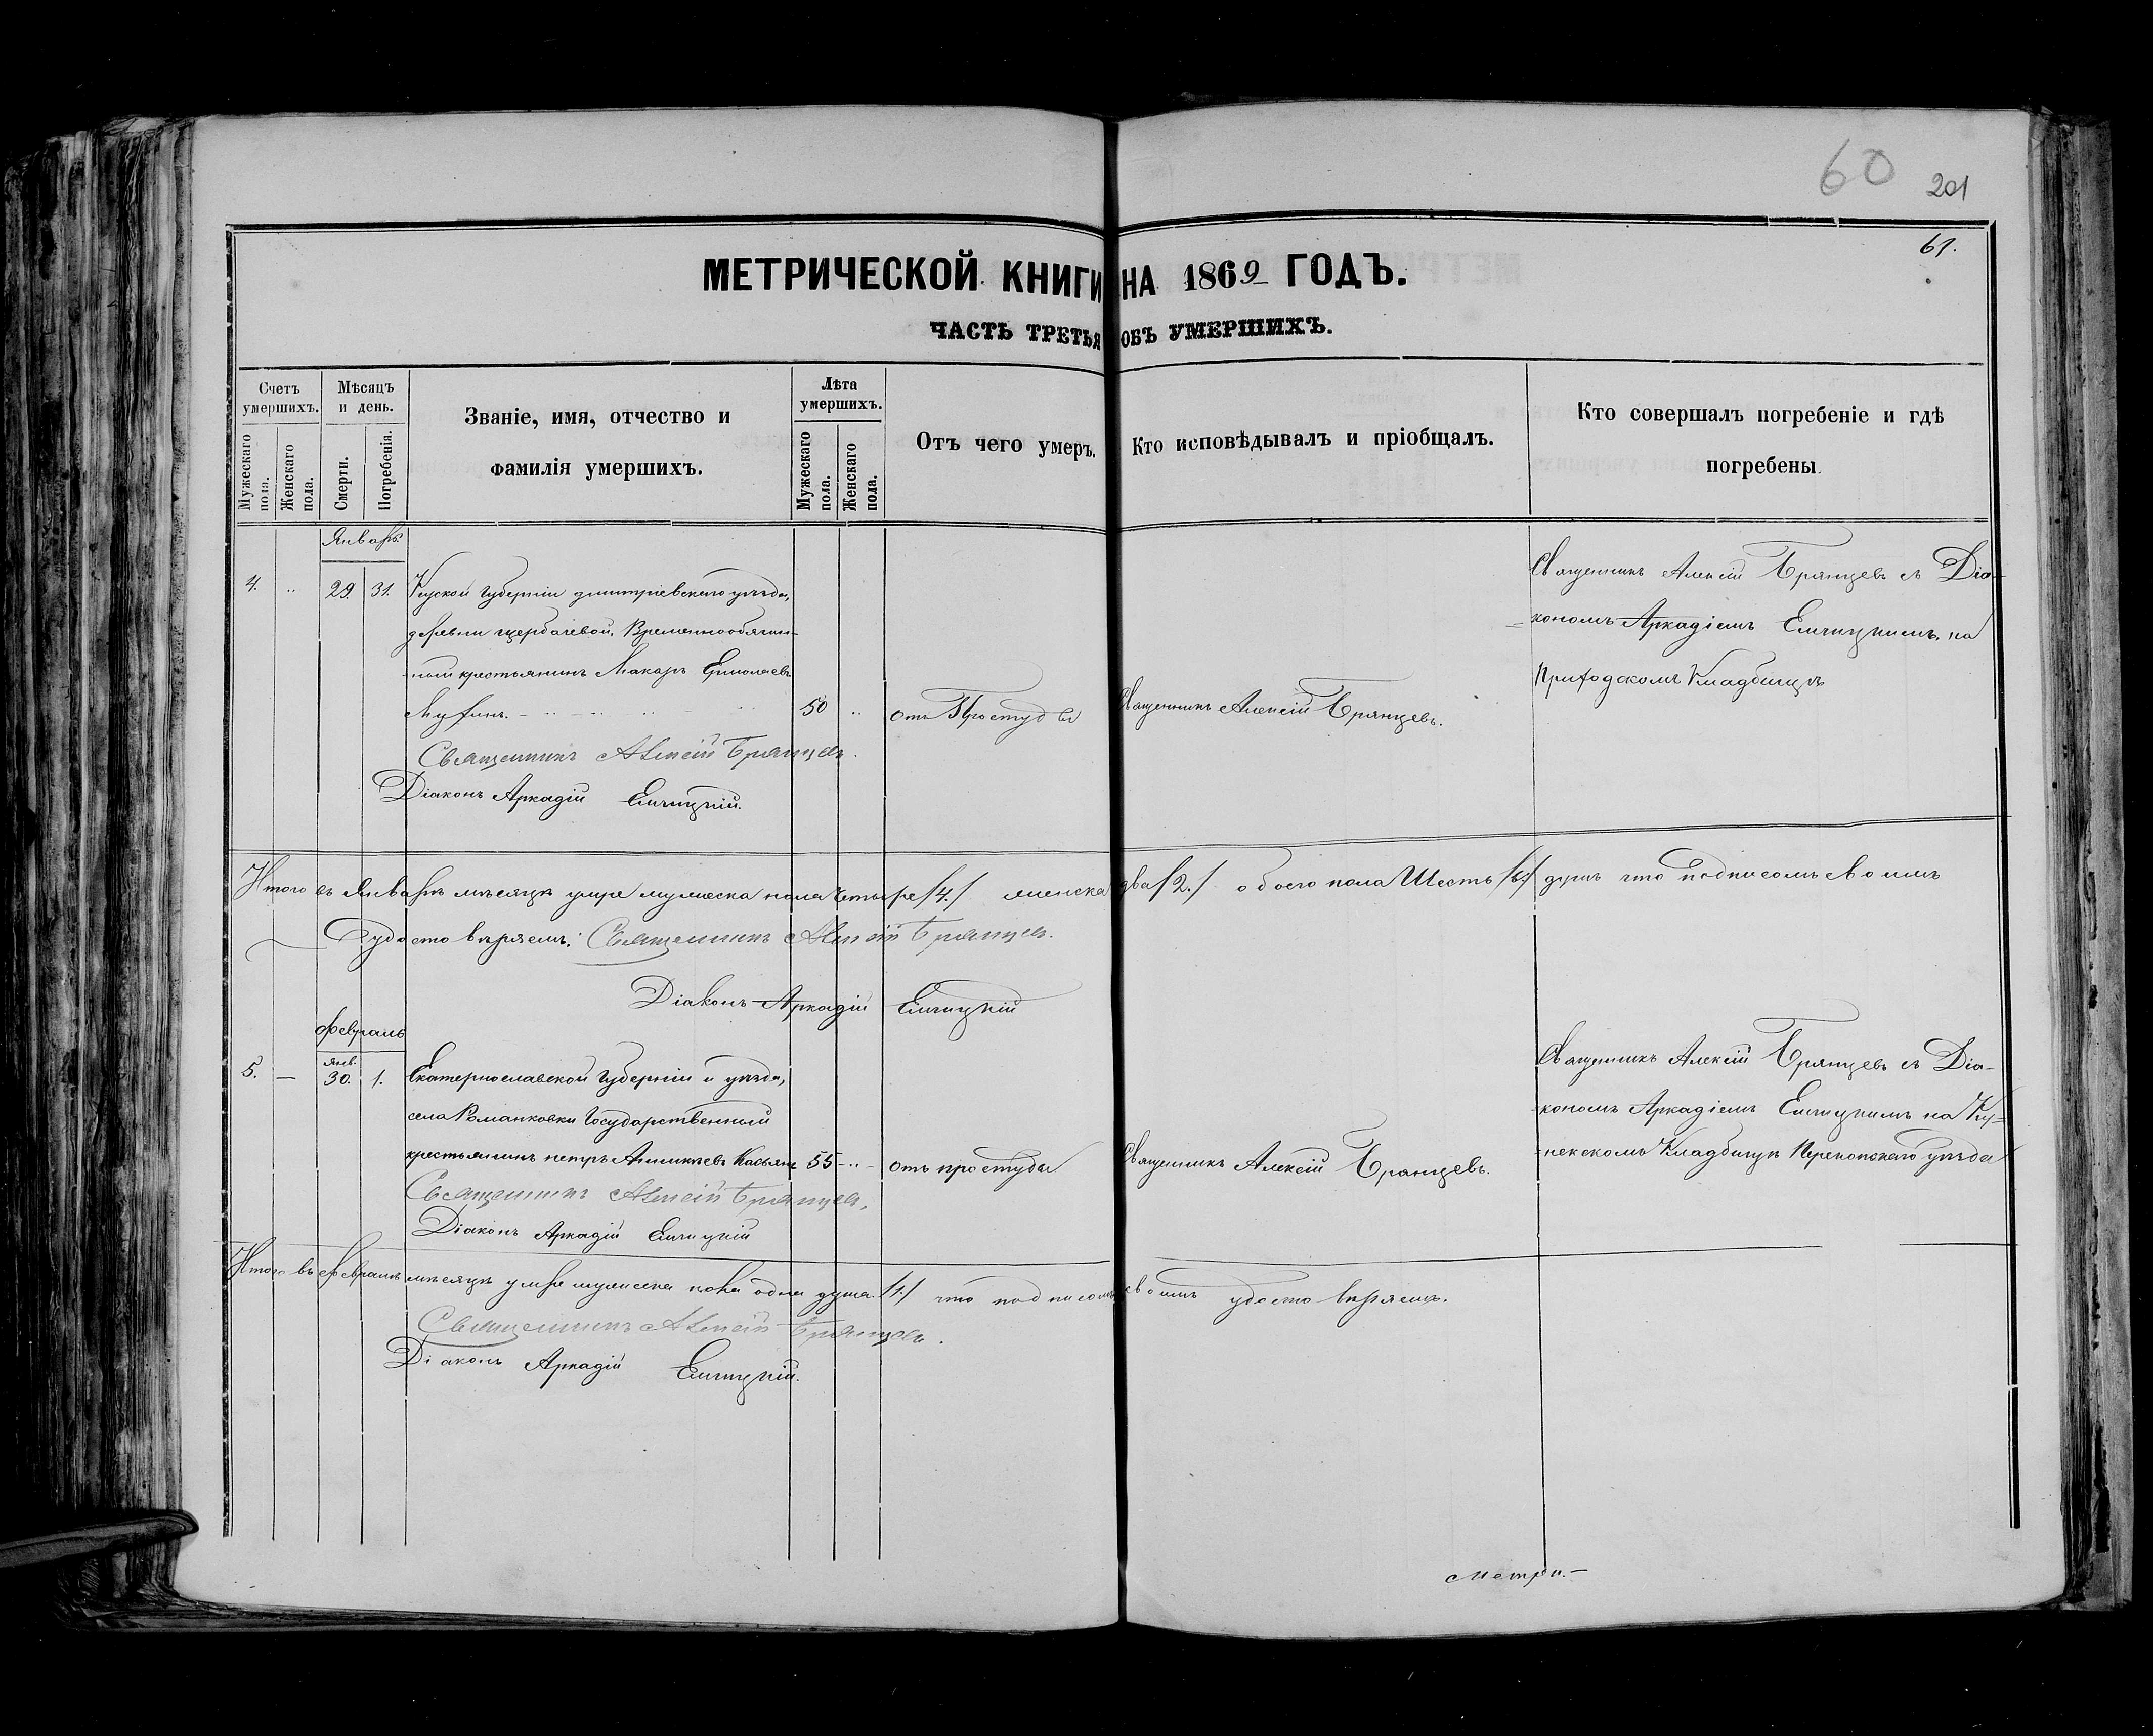 60
201
61.
МЕТРИЧЕСКОЙ КНИГИ НА 1869 ГОДЪ.
ЧАСТЬ ТРЕТЬЯ ОБЪ УМЕРШИХЪ.
Счетъ умершихъ.
Мужескаго пола.
Женскаго пола.
Мѣсяцъ и день.
Смерти.
Погребенія.
Званіе, имя, отчество и
фамилія умершихъ.
Лѣта умершихъ.
Мужескаго пола.
Женскаго пола.
Отъ чего умеръ.
Кто исповѣдывалъ и пріобщалъ.
Кто совершалъ погребеніе и гдѣ
погребены.
Январь
4. „ 29. 31. Курской Губерніи дмитріевскаго уѣзда,
деревни щербачевой, Временнообязан-
ный крестьянинъ Макаръ Ермолаевъ
50 „
отъ Простуды
Священникъ Алексій Брянцевъ.
Священникъ Алексій Брянцевъ съ Діа-
кономъ Аркадіемъ на
Приходскомъ Кладбищѣ
Священникъ Алексій Брянцевъ.
Діаконъ Аркадій
Итого въ Январѣ мѣсяцѣ умре мужеска пола четыре /4./ женска два /2./ обоего пола Шесть /6/ душъ что подписомъ своимъ
удостовѣряемъ: Священникъ Алексій Брянцевъ.
Діаконъ Аркадій
Февраль
5. — Янв. 30. 1. Екатеринославской Губерніи и уѣзда,
села Романковки Государственный
крестьянинъ петръ Касьянъ 55 - „ -
отъ простуды
Священникъ Алексій Брянцевъ.
Священникъ Алексій Брянцевъ съ Діа-
кономъ Аркадіемъ на
Кладбищѣ Перекопскаго уѣзда
Священникъ Алексій Брянцевъ.
Діаконъ Аркадій
Итого въ Февралѣ мѣсяцѣ умре мужеска пола одна душа /1./ что подписомъ своимъ удостовѣряемъ.
Священникъ Алексій Брянцевъ.
Діаконъ Аркадій
Метри.-